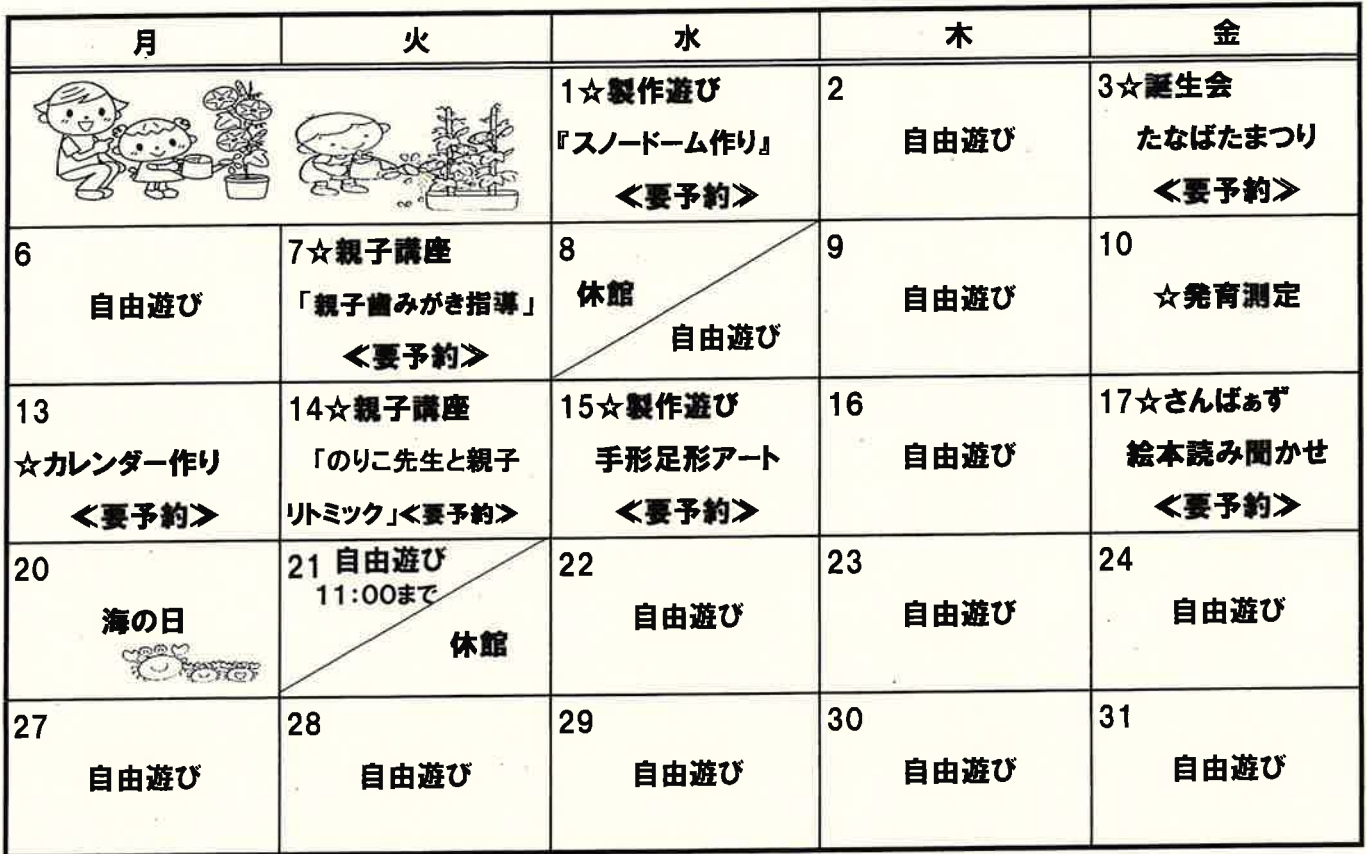 月 火 水 木 金
1☆製作遊び
『スノードーム作り』
≪要予約≫
2
自由遊び
3☆誕生会
たなばたまつり
≪要予約≫
6
自由遊び
7☆親子講座
「親子歯みがき指導」
≪要予約≫
8
休館
自由遊び
9
自由遊び
10
☆発育測定
13
☆カレンダー作り
≪要予約≫
14☆親子講座
「のりこ先生と親子
リトミック」≪要予約≫
15☆製作遊び
手形足形アート
≪要予約≫
16
自由遊び
17☆さんばぁず
絵本読み聞かせ
≪要予約≫
20
海の日
21 自由遊び
11:00まで
休館
22
自由遊び
23
自由遊び
24
自由遊び
27
自由遊び
28
自由遊び
29
自由遊び
30
自由遊び
31
自由遊び